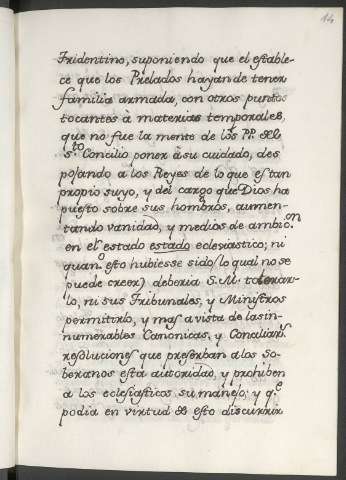 14
Tridentino, suponiendo que el estable-
ce que los Prelados hayan de tener
familia armada, con otros puntos
tocantes à materias temporales,
que no fue la mente de los PP. del
Sto. Concilio poner à su cuidado, des
posando a los Reyes de lo que es tan
propio suyo, y del cargo que Dios ha
puesto sobre sus hombros, aumen-
tando vanidad, y medios de ambicon
en el estado estado eclesiastico; ni
quando. esto hubiesse sido (lo qual no se
puede creer) deberia S.M. tolerar-
lo, ni sus Tribunales, y Ministros
permitirlo, y mas a vista de las in-
numerables Canonicas, y Conciliars.
resoluciones que preserban a los So-
beranos esta autoridad, y prohiben
a los eclesiasticos su manejo; y qe.
podia en virtud de esto discurrir